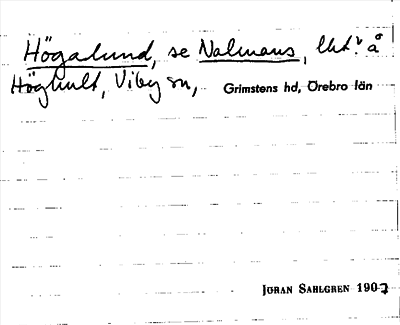 Högalund, se Nalmans, lht. å
Höghult, Viby sn, Grimstens hd, Örebro län
JÖRAN SAHLGREN 1907